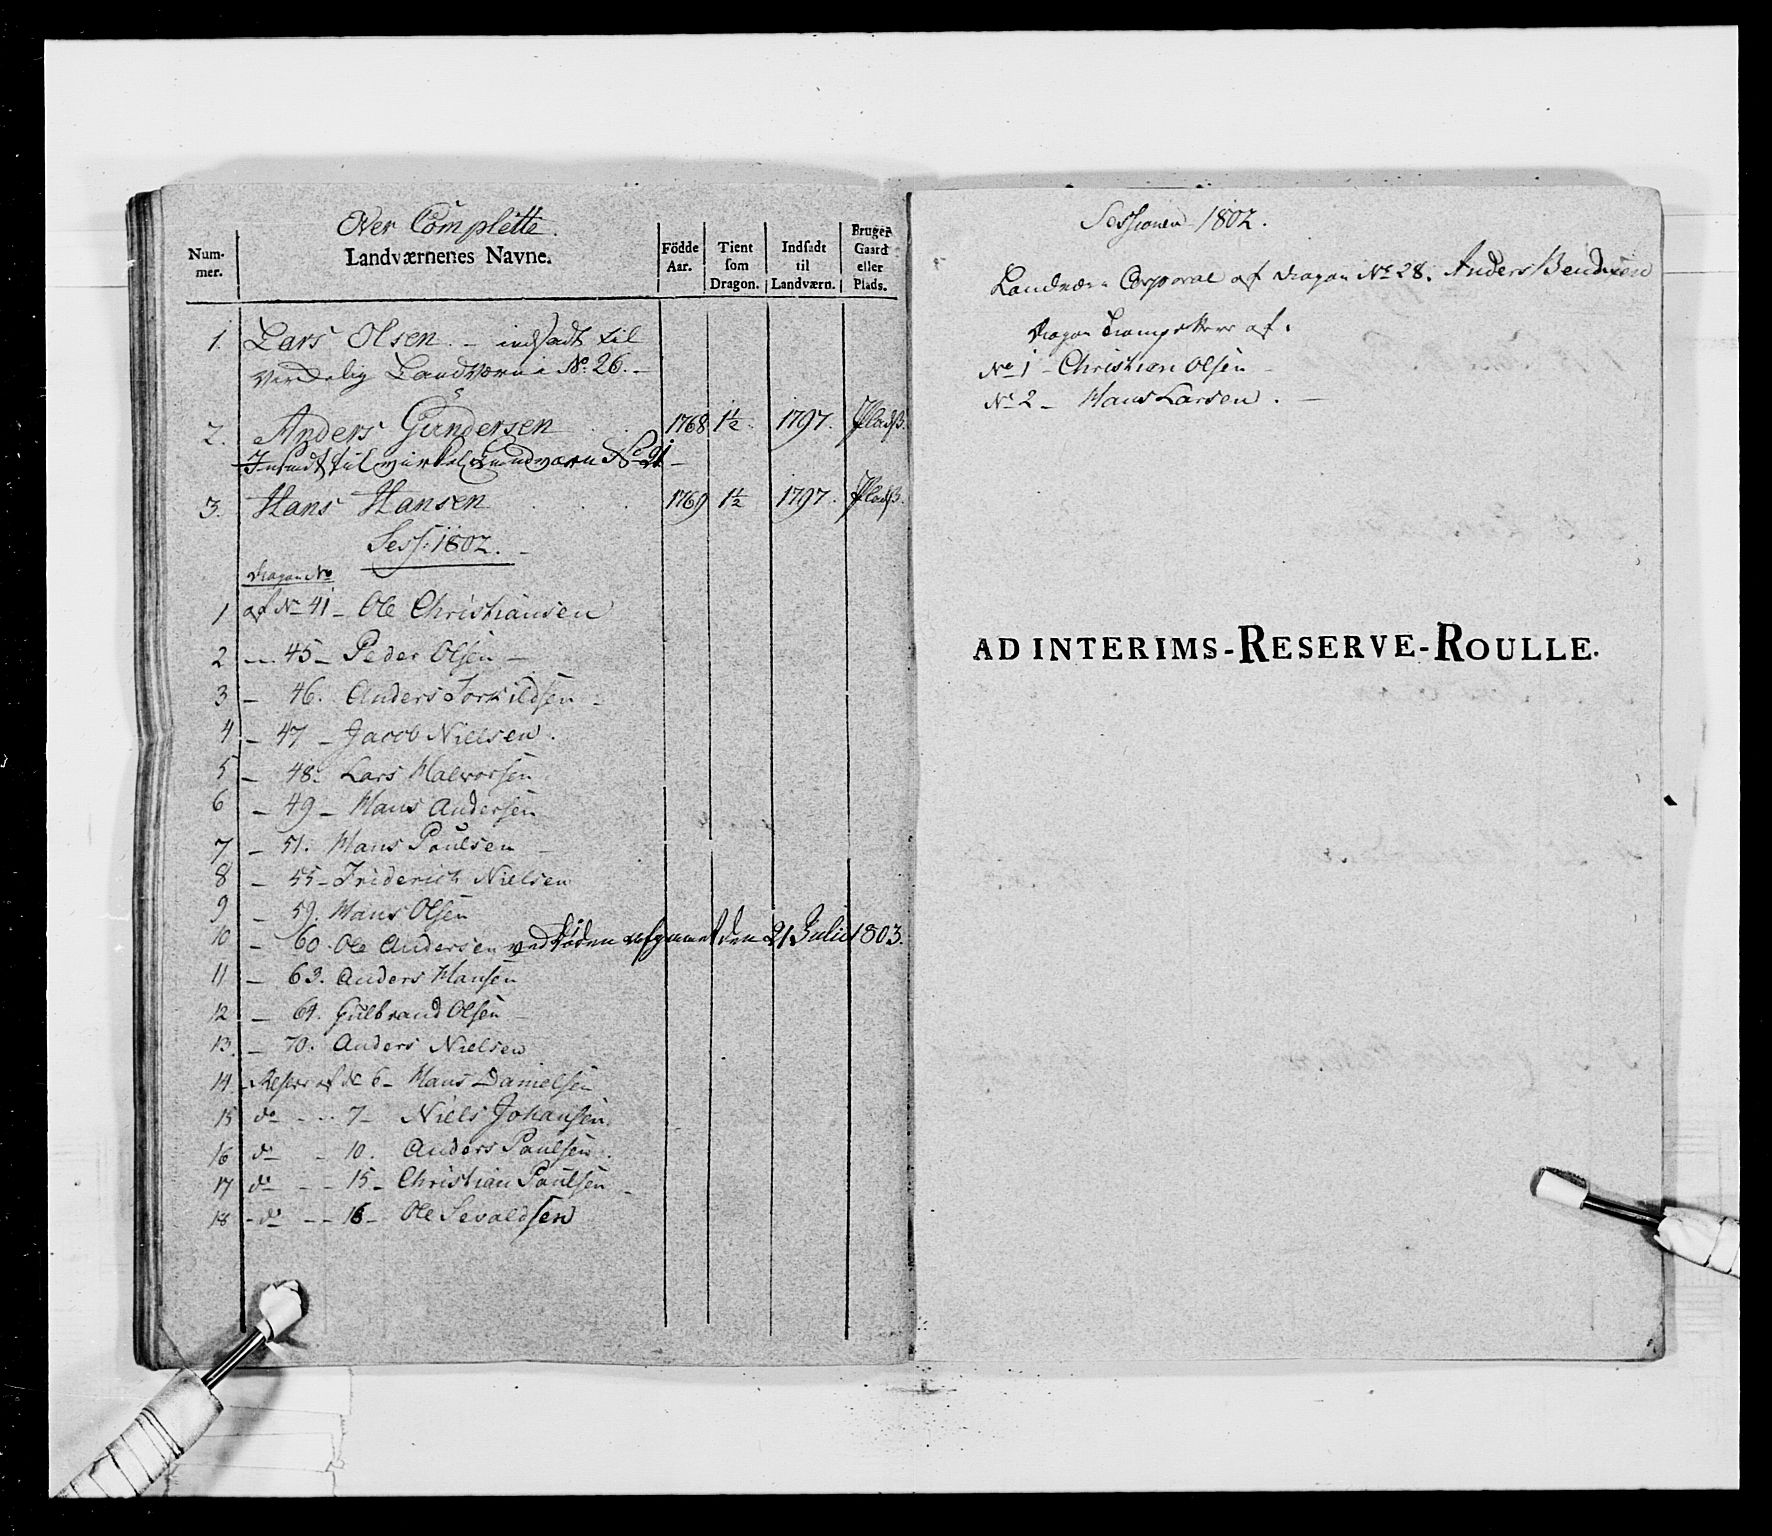 Over Complette.
Nummer.
Landværnenes Navne.
Födde Aar.
Tient som Dragon.
Indsadt til Landværn.
Bruger Gaard eller Plads.
1. Lars Olsen. - indsadt til
Virkelig Landværn i No. 26. -
2. Anders Gundersen 1768 1½ 1797. Plads.
Insadt til virkel Landværn No 21 -
3. Hans Hansen 1769 1½ 1797. Plads.
Sess: 1802. -
Dragon No
1 af No 41 - Ole Christiansen
2 - 45 - Peder Olsen -
3 - 46. Anders Torkildsen -
4 - 47 - Jacob Nielsen.
5 - 48. Lars Halvorsen
6 - 49 - Hans Andersen
7 - 51. Hans Poulsen -
8 - 55 - Friderich Nielsen
9 - 59. Hans Olsen
10 - 60. Ole Andersen ved Döden afganet den 21 Julii 1803.
11 - 63. Anders Hansen
12 - 64. Gulbrand Olsen -
13. - 70. Anders Nielsen
14. Reserv af No 6 - Hans Danielsen
15 do - - 7 - Niels Johansen.
16 do - 10. Anders Paulsen.
17 do - - 15 - Christian Poulsen -
18 - do - - 16 - Ole Sevaldsen
Sessionen 1802.
Landværn Corporal af Dragon No 28. Anders Bendixen
Dragon Trompetterer af.
No 1 - Christian Olsen -
No 2 - Hans Larsen. -
AD INTERIMS-RESERVE-ROULLE.